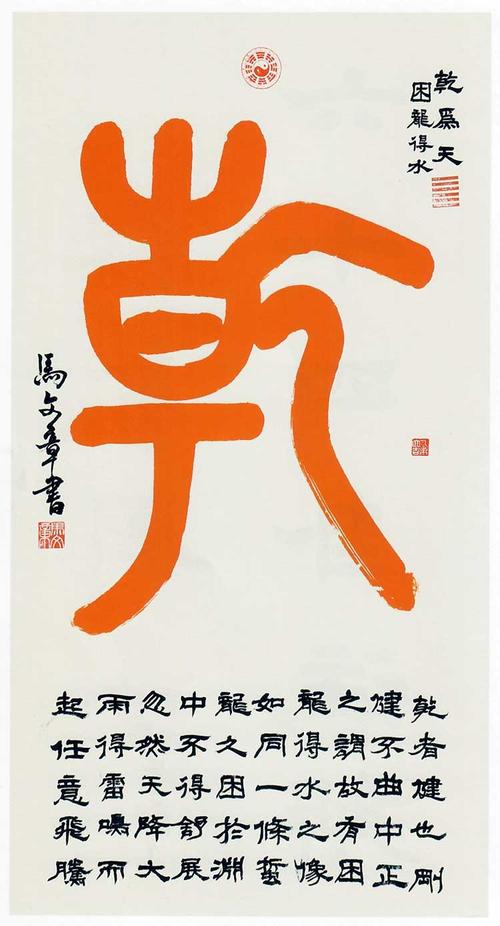 乾爲天
困龍得水
乾
馬文章書
乾者健也剛
健不曲中正
之謂故有困
龍得水之像
如同一條蜇
龍之困於淵
中不得舒展
忽然天降大
雨得雷鳴而
起任意飛騰